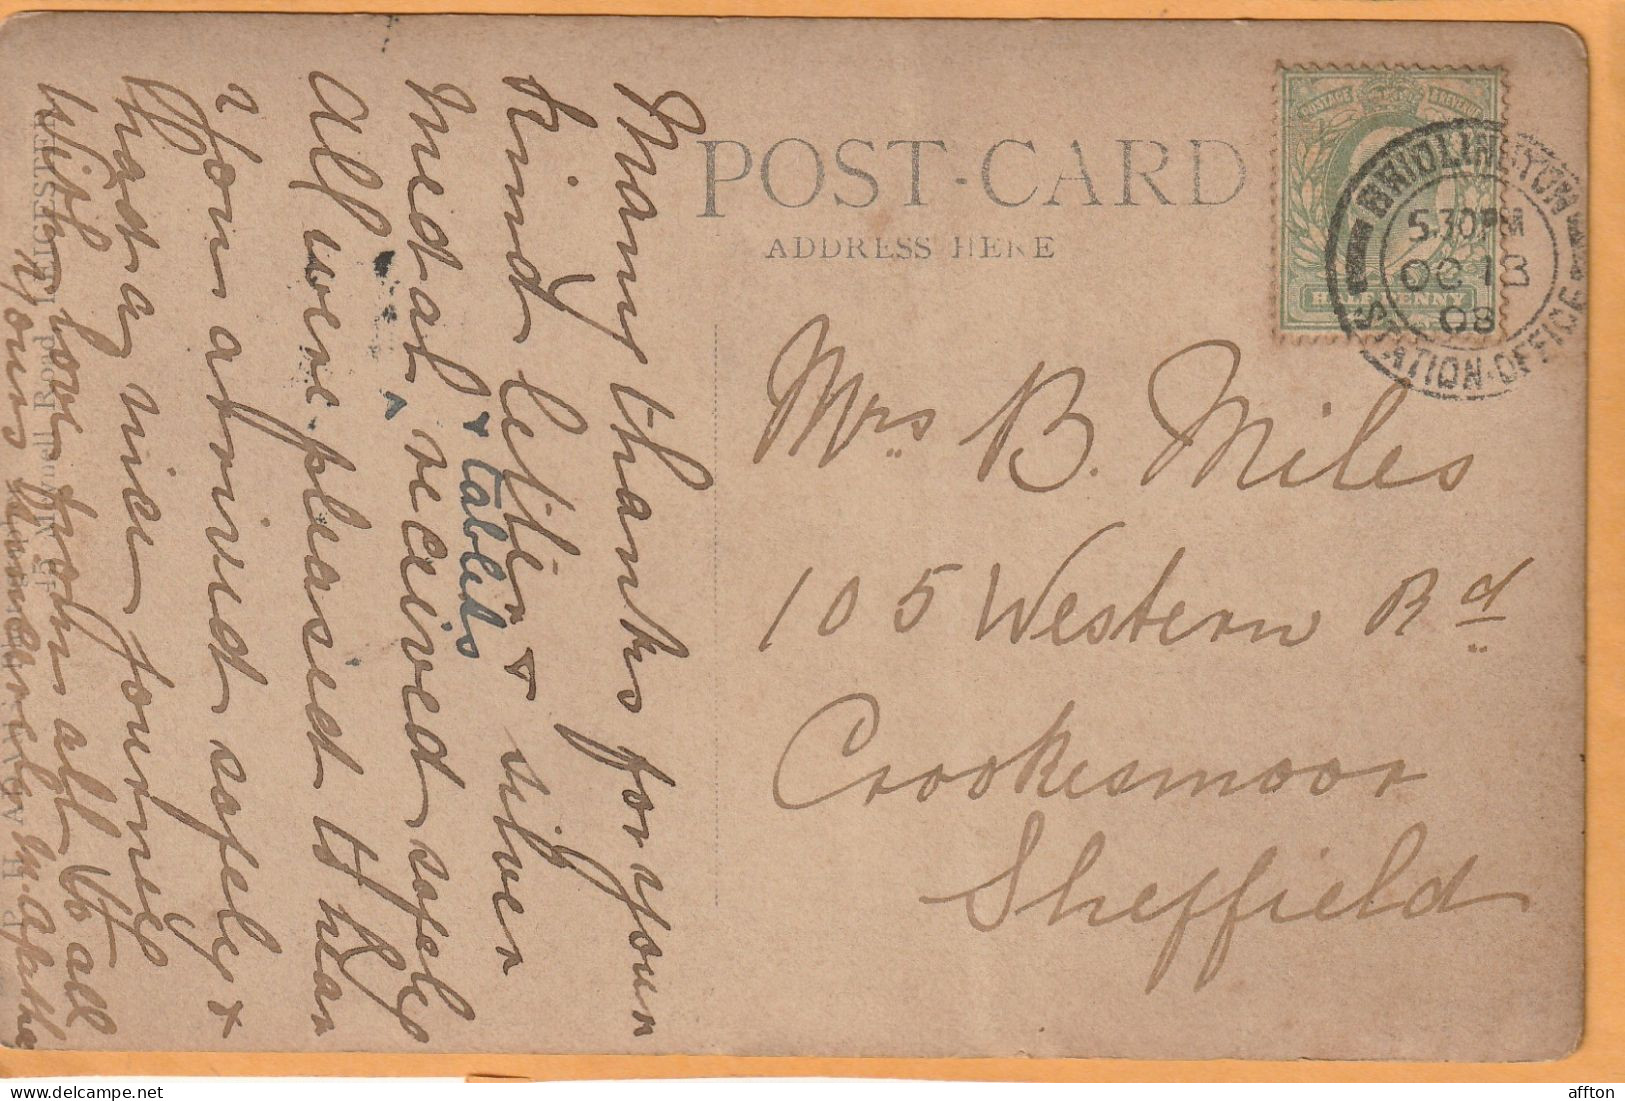 POST-CARD
ADDRESS HERE
POSTAGE & REVENUE
HALF PENNY
BRIDLINGTON
5.30 PM
OC 13
08
STATION-OFFICE
Mrs B. Miles
105 Western Rd
Crookesmoor
Sheffield
Many thanks for your
kind letter & silver
medal, & tablets received safely
All were pleased to hear
you arrived safely &
had a nice journey
With love from all to all
Yours sincerely M. Agatha
LEICESTER
affton